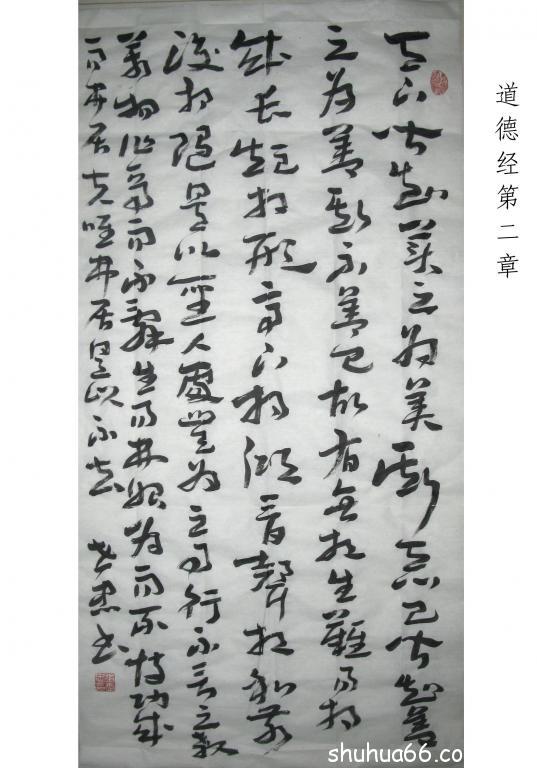 道德经第二章
天下皆知美之为美斯恶已皆知善
之为善斯不善已故有无相生難易相
成长短相形高下相倾音聲相和前
後相随是以聖人處無为之事行不言之教
萬物作焉而不辭生而弗有为而不恃功成
而弗居夫唯弗居是以不去
shuhua66.co